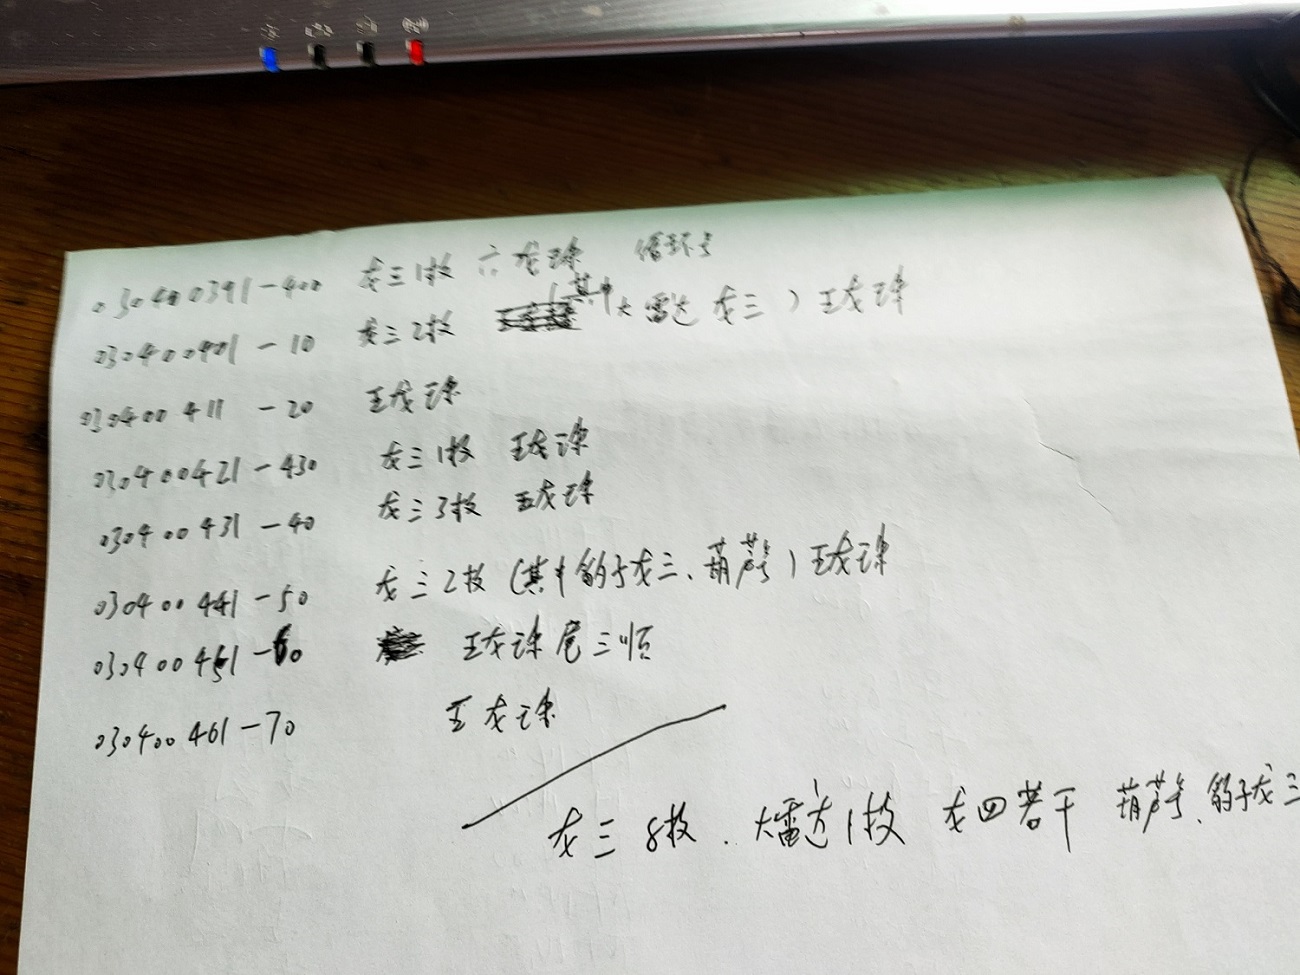 030400391-400 龙三1枚 六龙珠 循环号
030400401-10 龙三2枚 (其中大雷达龙三)五龙珠
030400411-20 五龙珠
030400421-430 龙三1枚 五龙珠
030400431-40 龙三3枚 五龙珠
030400441-50 龙三2枚(其中豹子龙三、葫芦号)五龙珠
030400451-60 五龙珠尾三顺
030400461-70 五龙珠
龙三8枚.大雷达1枚 龙四若干 葫芦号、豹子龙三